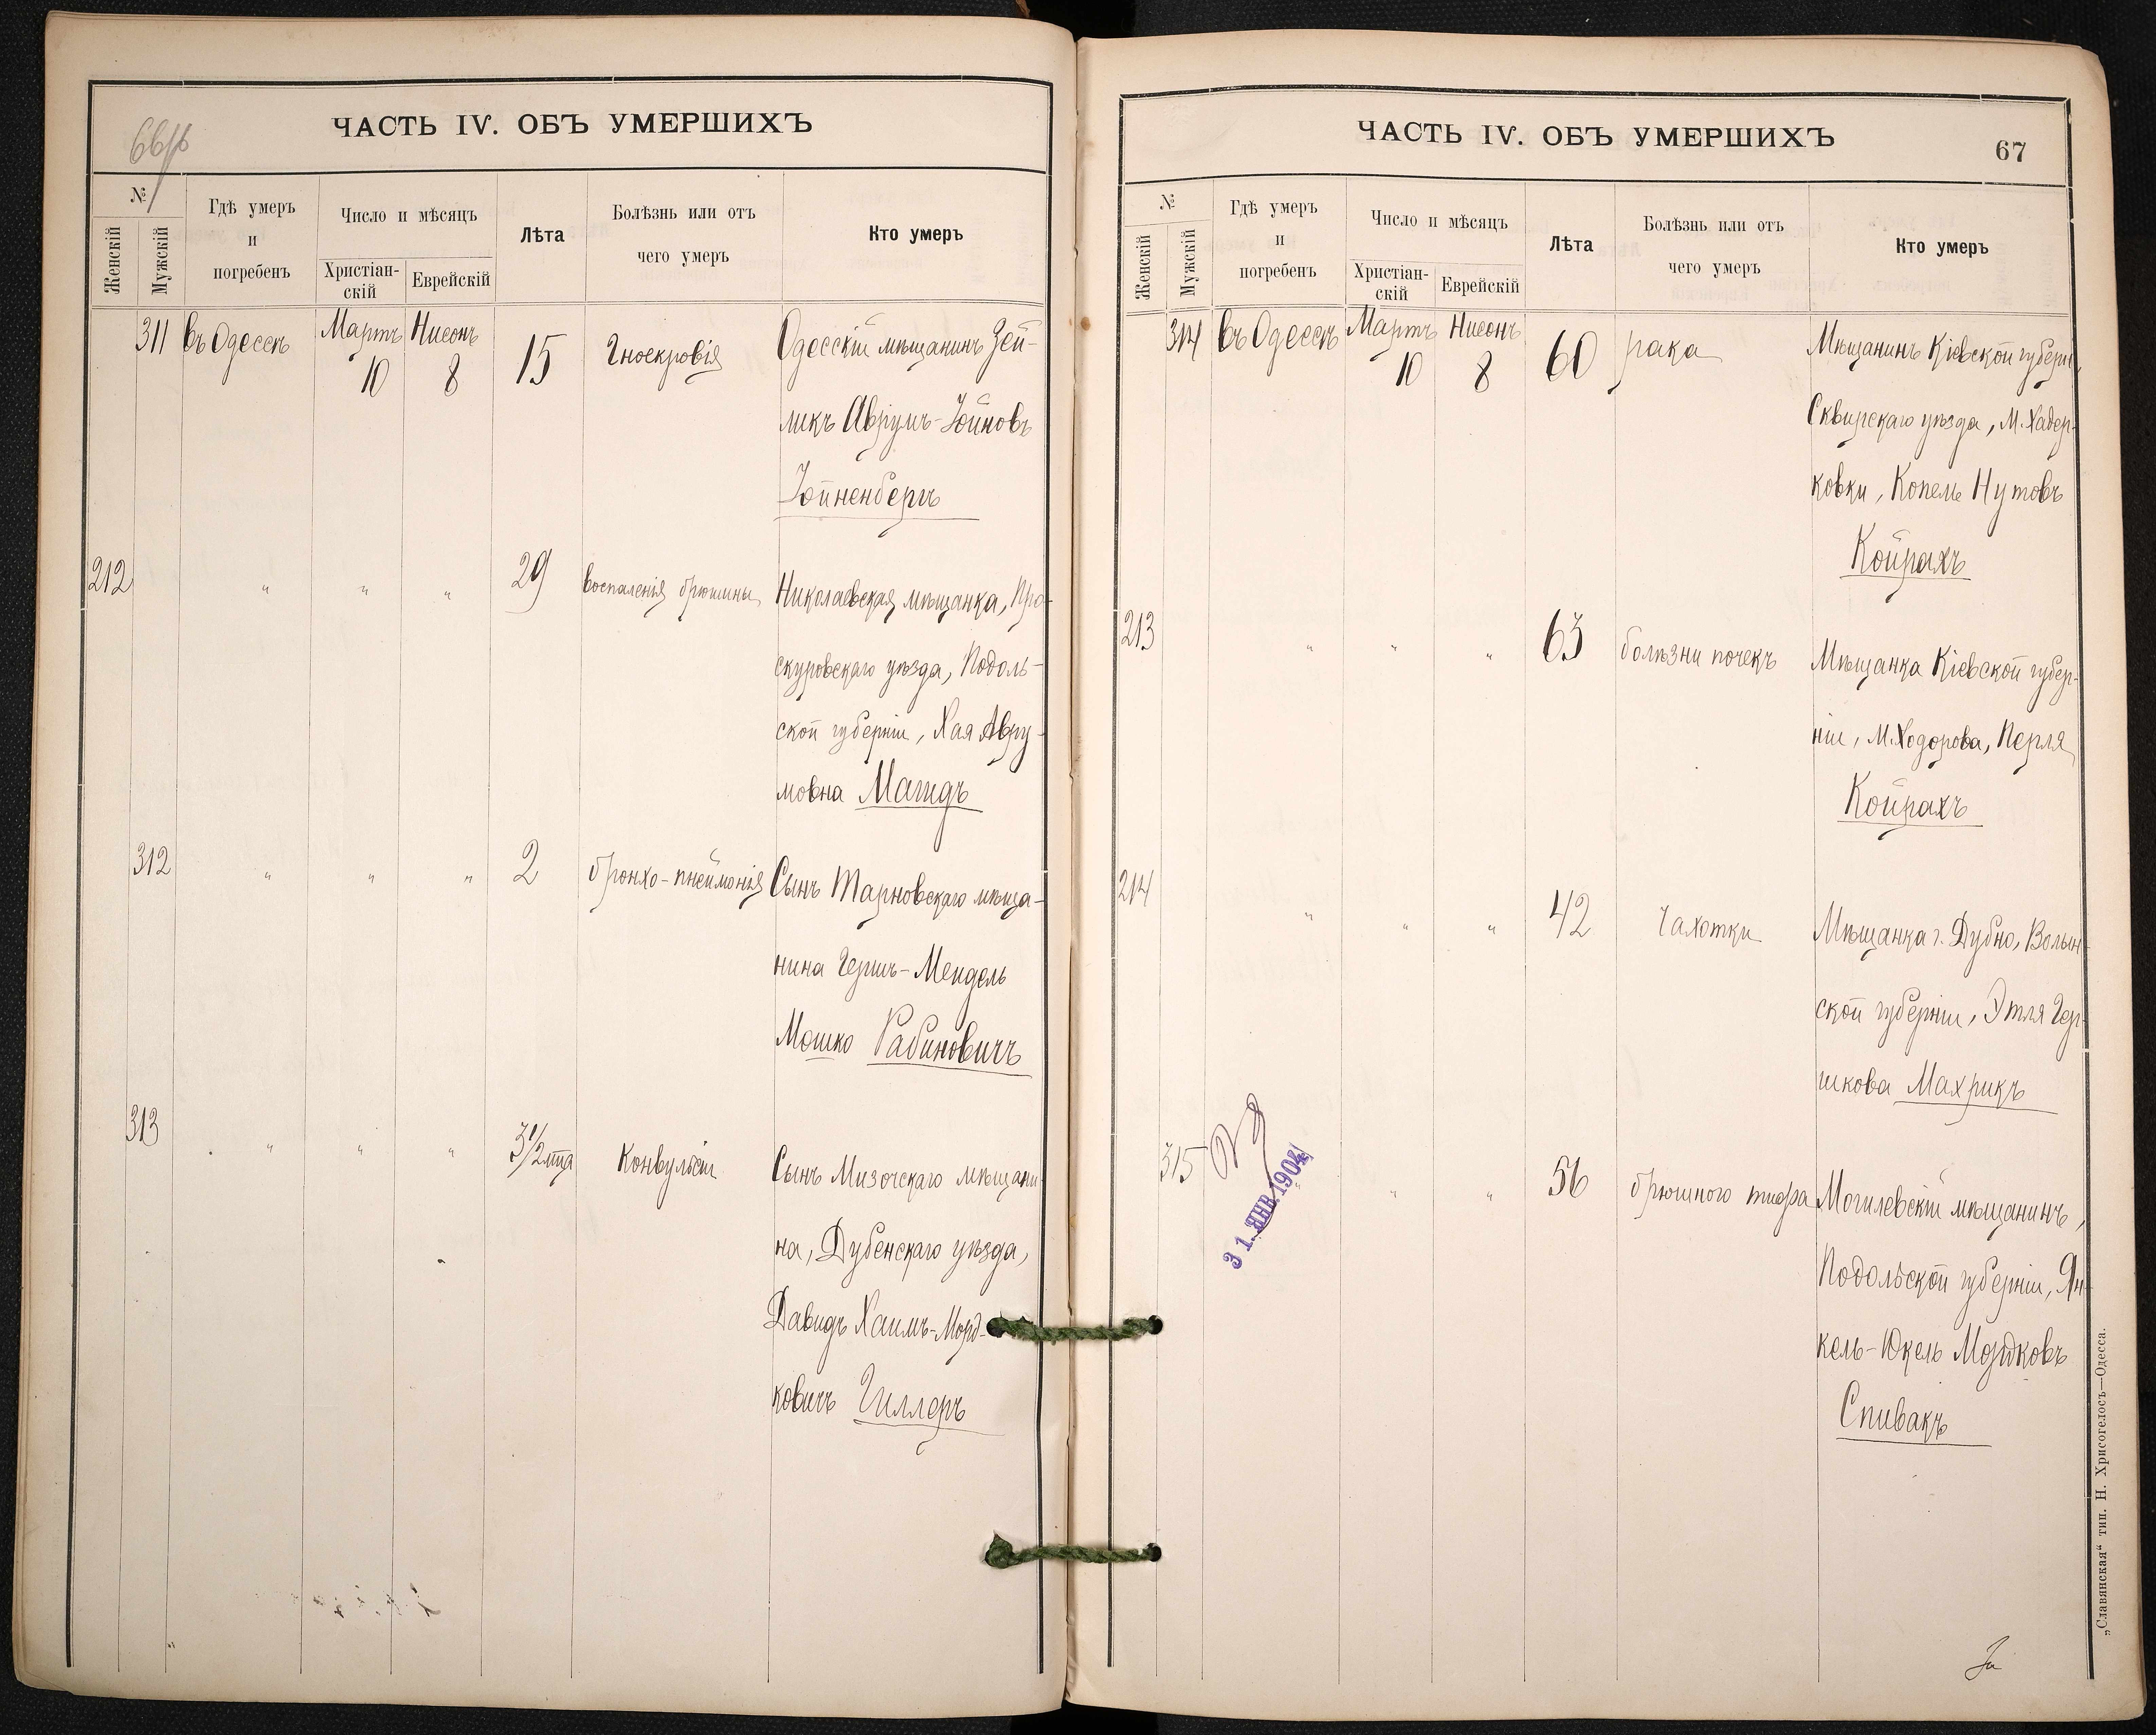 66об
ЧАСТЬ IV. ОБЪ УМЕРШИХЪ
№
Женскій
Мужскій
Гдѣ умеръ
и
погребенъ
Число и мѣсяцъ
Христіан-
скій
Еврейскій
Лѣта
Болѣзнь или отъ
чего умеръ
Кто умеръ
311 въ Одессѣ Мартъ 10 Нисонъ 8 15 Гноекровія Одесскій мѣщанинъ Зей-
ликъ Аврумъ-Іойновъ
Іойненбергъ
212 " " " 29 воспаленія брюшины Николаевская мѣщанка, Про-
скуровскаго уѣзда, Подоль-
ской губерніи, Хая Авру-
мовна Магидъ
312 " " " 2 бронхо-пнеймонія Сынъ Тарновскаго мѣща-
нина Гершъ-Мендель
Мошко Рабиновичъ
313 " " " 3 1/2 лѣта Конвульсіи Сынъ Мизочскаго мѣщани-
на, Дубенскаго уѣзда,
Давидъ Хаимъ-Морд-
ковичъ Гиллеръ
ЧАСТЬ IV. ОБЪ УМЕРШИХЪ
67
№
Женскій
Мужскій
Гдѣ умеръ
и
погребенъ
Число и мѣсяцъ
Христіан-
скій
Еврейскій
Лѣта
Болѣзнь или отъ
чего умеръ
Кто умеръ
314 въ Одессѣ Мартъ 10 Нисонъ 8 60 рака Мѣщанинъ Кіевской губерн.
Сквирскаго уѣзда, М. Ходор-
ковки, Копель Нутовъ
Койрахъ
213 " " " 63 болѣзни почекъ Мѣщанка Кіевской губер-
ніи, М. Ходорова, Перля
Койрахъ
214 " " " 42 Чахотки Мѣщанка г. Дубно, Волын-
ской губерніи, Этля Гер-
шкова Махрикъ
315 " " " 56 брюшного тифа Могилевскій мѣщанинъ,
Подольской губерніи, Ян-
кель-Юкель Мордковъ
Спивакъ
31. ЯНВ. 1904
„Славянская“ тип. Н. Хрисогелосъ—Одесса.